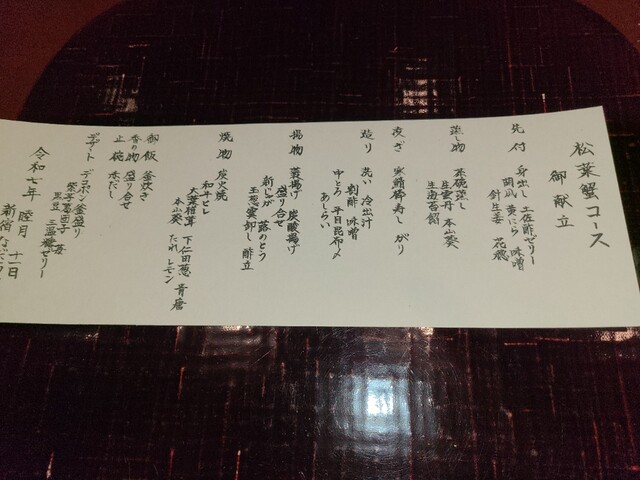 松葉蟹コース
御献立
先付 身出し 土佐酢ゼリー
黄にら 味噌
針生姜 花穂
蒸し物 茶碗蒸し
生雲丹 本山葵
生海苔餡
凌ぎ 寒鯖棒寿し がり
造り 洗い 冷出汁
割酢 味噌
中とろ 平目昆布〆
あしらい
揚物 蓑揚げ 炭酸揚げ
盛り合せ
新じゃが 蕗のとう
玉葱雲卸し 酢立
焼物 炭火焼
和牛ヒレ
大葉椎茸 下仁田葱 青唐
本山葵 たれ レモン
御飯 釜炊き
香の物 盛り合せ
止椀 赤だし
デザート デコポン釜盛り
苺
黒豆 三温糖ゼリー
令和七年 睦月 十一日
新宿